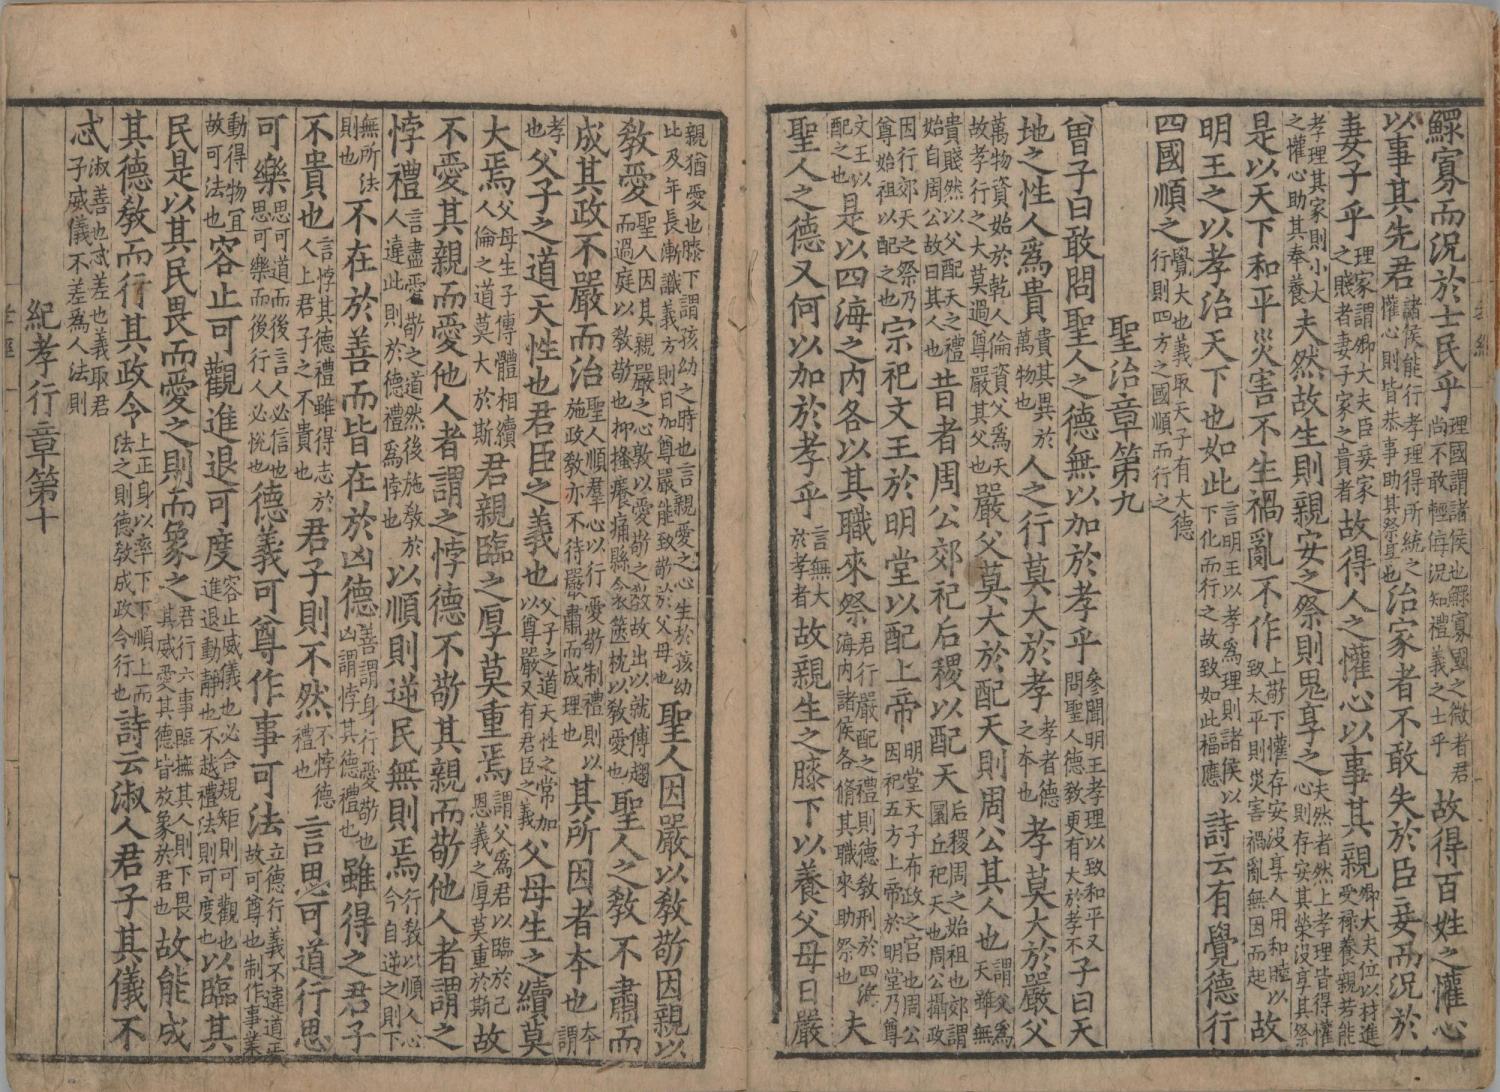 鰥寡而況於士民乎理國謂諸侯也鰥寡國之微者君尚不敢輕侮況知禮義之士乎故得百姓之懽心
以事其先君諸侯能行孝理得所統之懽心則皆恭事助其祭享也治家者不敢失於臣妾而況於
妻子乎理家謂卿大夫臣妾家之賤者妻子家之貴者故得人之懽心以事其親卿大夫位以材進受祿養親若能
孝理其家則小大之懽心助其奉養夫然故生則親安之祭則鬼享之夫然者然上孝理皆得懽心則存安其榮沒享其祭
是以天下和平災害不生禍亂不作上敬下懽存安沒享人用和睦以致太平則災害禍亂無因而起故
明王之以孝治天下也如此言明王以孝爲理則諸侯以下化而行之故致如此福應詩云有覺德行
四國順之覺大也義取天子有大德行則四方之國順而行之
聖治章第九
曾子曰敢問聖人之德無以加於孝乎參聞明王孝理以致和平又問聖人德教更有大於孝不子曰天
地之性人爲貴貴其異於萬物也人之行莫大於孝孝者德之本也孝莫大於嚴父
萬物資始於乾人倫資父爲天故孝行之大莫過尊嚴其父也嚴父莫大於配天則周公其人也謂父爲天雖無
貴賤然以父配天之禮始自周公故曰其人也昔者周公郊祀后稷以配天后稷周之始祖也郊謂圜丘祀天也周公攝政
因行郊天之祭乃尊始祖以配之也宗祀文王於明堂以配上帝明堂天子布政之宮也周公因祀五方上帝於明堂乃尊
文王以配之也是以四海之內各以其職來祭君行嚴配之禮則德教刑於四海海內諸侯各脩其職來助祭也夫
聖人之德又何以加於孝乎言無大於孝者故親生之膝下以養父母日嚴
親猶愛也膝下謂孩幼之時也言親愛之心生於孩幼比及年長漸識義方則日加尊嚴能致敬於父母也聖人因嚴以教敬因親以
教愛聖人因其親嚴之心敦以愛敬之教故出以就傅趨而過庭以教敬也抑搔癢痛縣衾篋枕以教愛也聖人之教不肅而
成其政不嚴而治聖人順羣心以行愛敬制禮則以施政教亦不待嚴肅而成理也其所因者本也本謂
孝也父子之道天性也君臣之義也父子之道天性之常加以尊嚴又有君臣之義父母生之續莫
大焉父母生子傳體相續人倫之道莫大於斯君親臨之厚莫重焉謂父爲君以臨於己恩義之厚莫重於斯故
不愛其親而愛他人者謂之悖德不敬其親而敬他人者謂之
悖禮言盡愛敬之道然後施教於人違此則於德禮爲悖也以順則逆民無則焉行教以順人心今自逆之則下
無所法則也不在於善而皆在於凶德善謂身行愛敬也凶謂悖其德禮也雖得之君子
不貴也言悖其德禮雖得志於人上君子之不貴也君子則不然不悖德禮也言思可道行思
可樂思可道而後言人必信也思可樂而後行人必悅也德義可尊作事可法立德行義不違道正故可尊也制作事業
動得物宜故可法也容止可觀進退可度容止威儀也必合規矩則可觀也進退動靜也不越禮法則可度也以臨其
民是以其民畏而愛之則而象之君行六事臨撫其人則下畏其威愛其德皆放象於君也故能成
其德教而行其政令上正身以率下下順上而法之則德教成政令行也詩云淑人君子其儀不
忒淑善也忒差也義取君子威儀不差爲人法則
紀孝行章第十